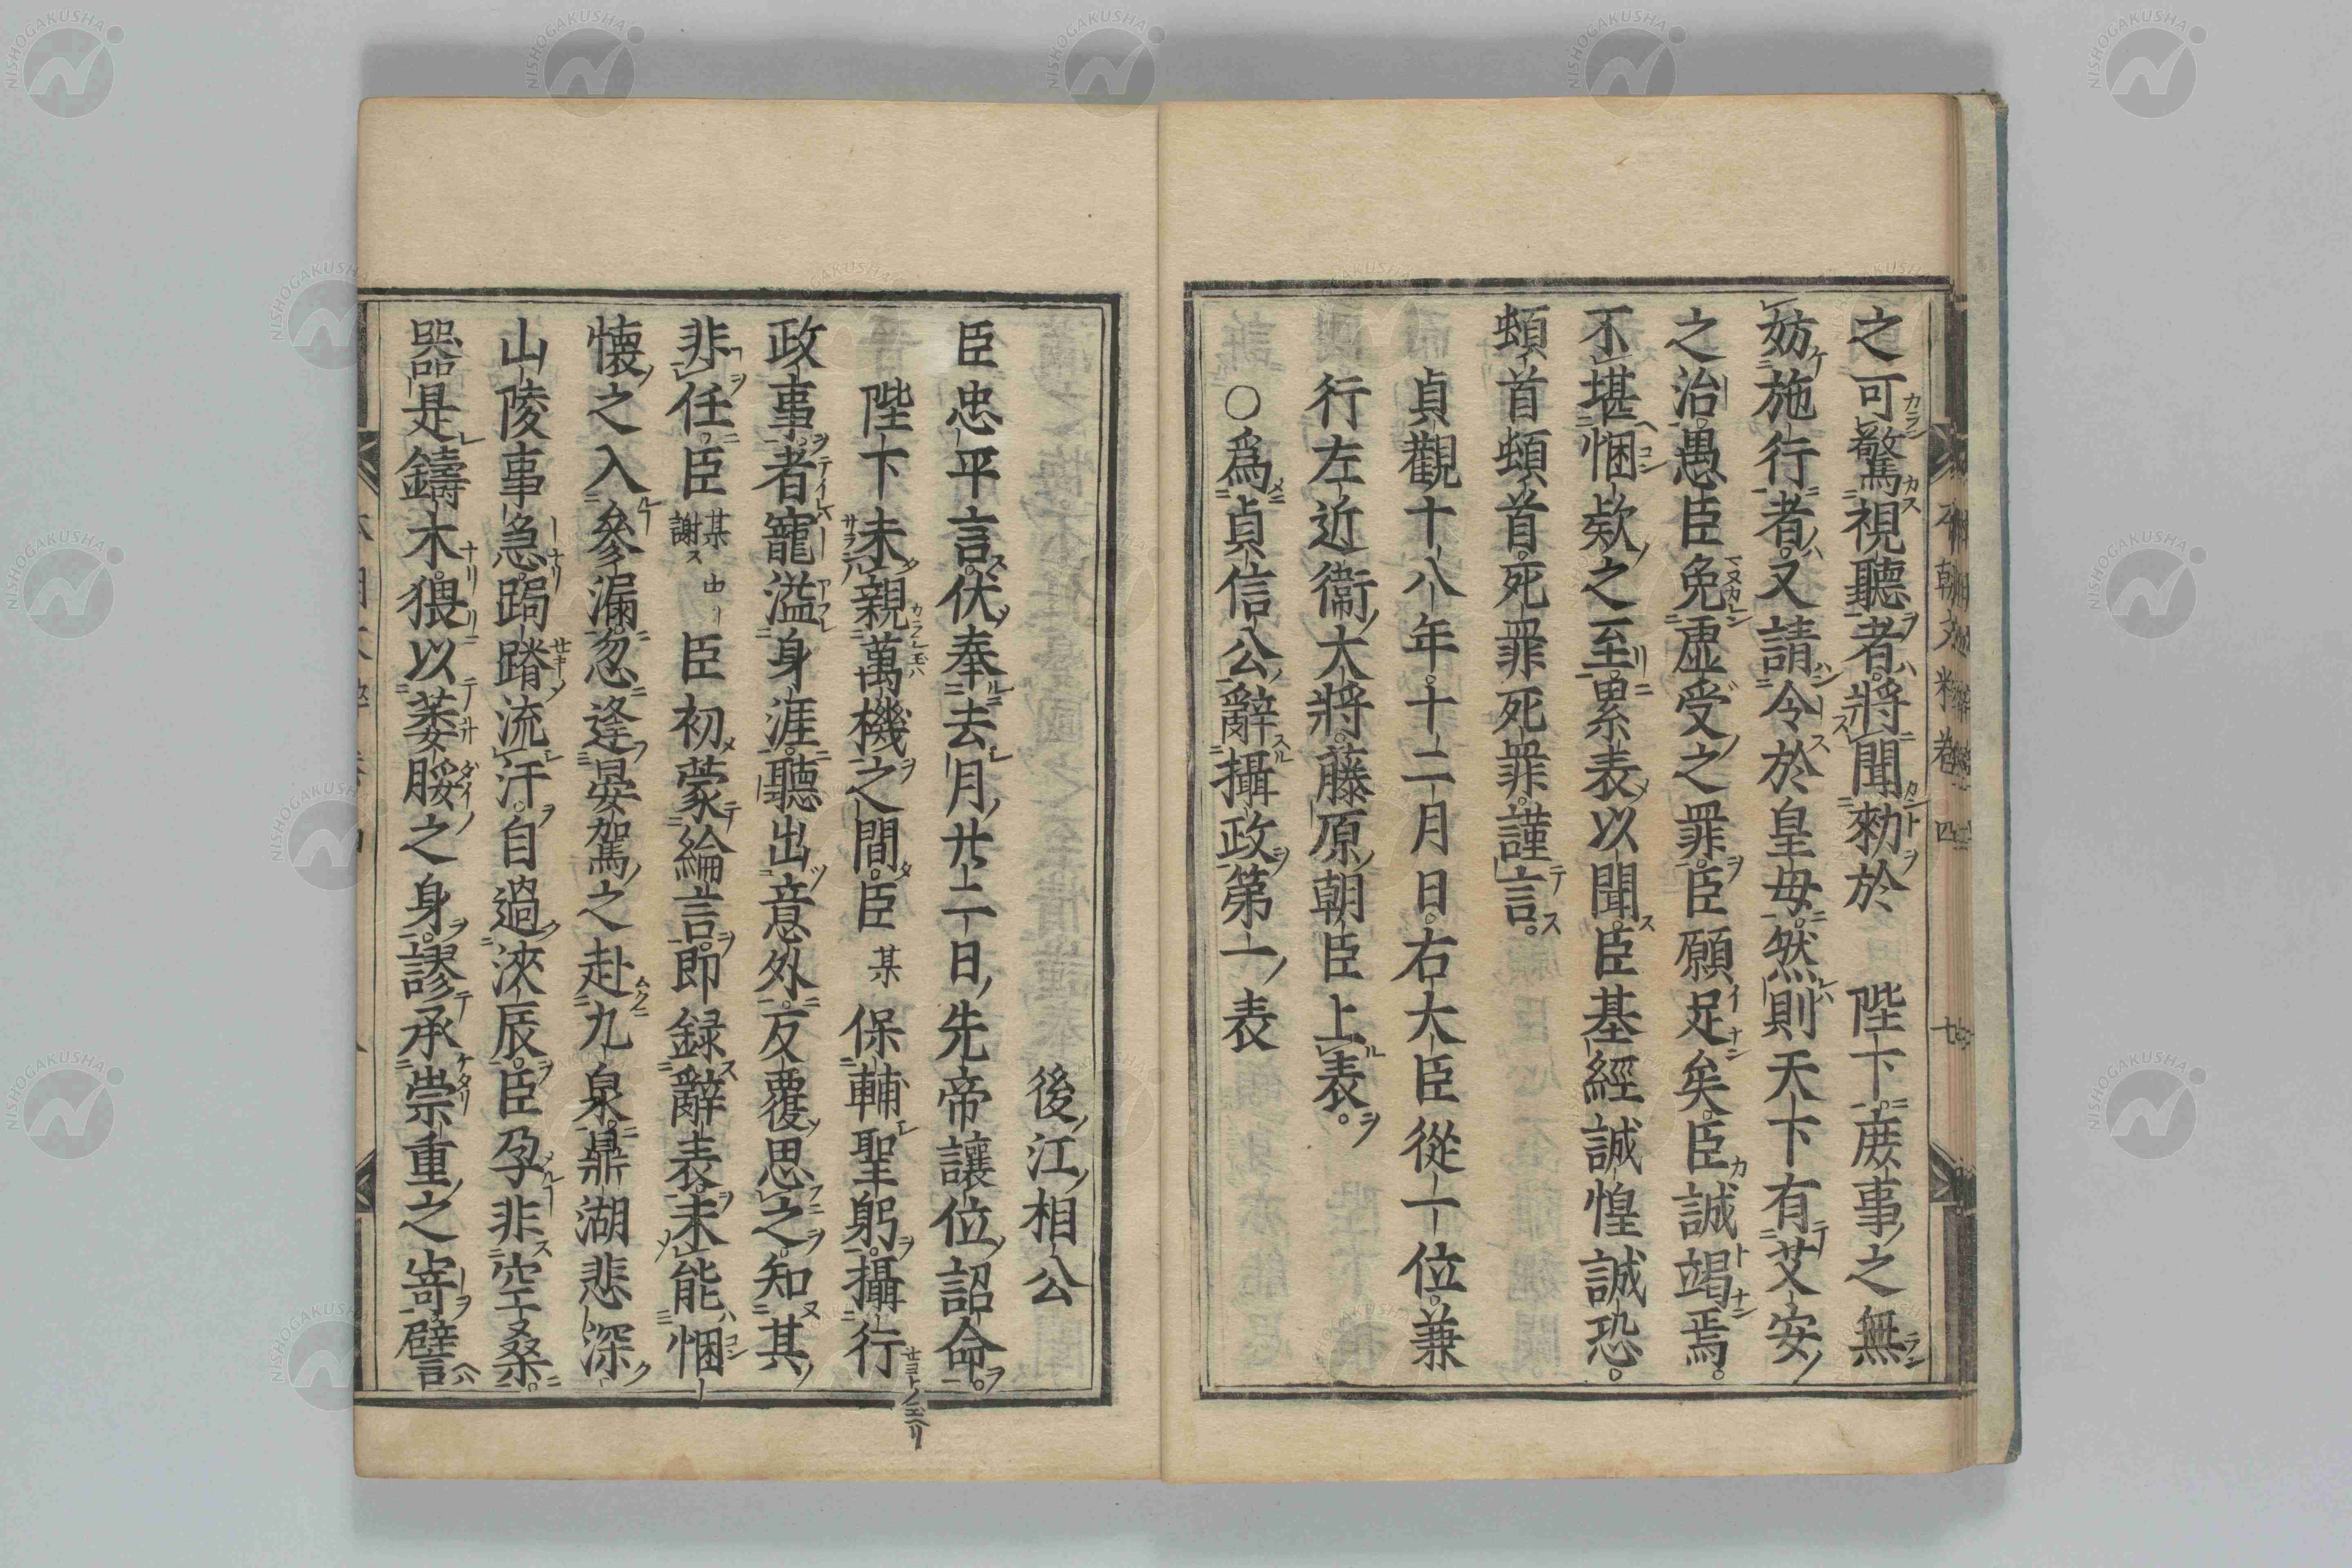 之可驚視聽者將聞勑於 陛下庶事之無
妨施行者又請令於皇母然則天下有艾安
之治愚臣免虛受之罪臣願足矣臣誠竭焉
不堪悃欵之至累表以聞臣基經誠惶誠恐
頓首頓首死罪死罪謹言
貞觀十八年十二月日右大臣從一位兼
行左近衞大將藤原朝臣上表
○爲貞信公辭攝政第一表
後江相公
臣忠平言伏奉去月廿二日先帝讓位詔命
陛下未親萬機之間臣某保輔聖躬攝行
政事者寵溢身涯聽出意外反覆思之知其
非任臣某謝 中 臣初蒙綸言即録辭表未能悃
懐之入參漏忽逢晏駕之赴九泉鼎湖悲深
山陵事急跼蹐流汗自過浹辰臣孕非空桑
器是鑄木猥以萎腇之身謬承崇重之寄譬